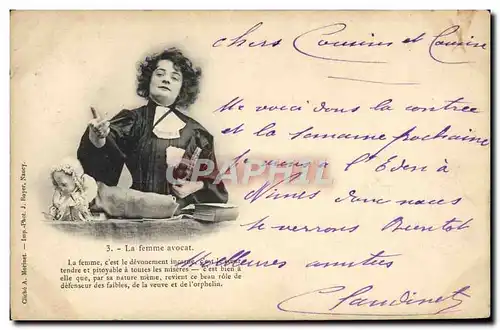 chers Cousins et Cousine
Me voici dans la contrée
et la semaine prochaine
je serai à l'Eden à
Nimes donc nous
te verrons Bientôt
Meilleures amitiés
Gaudinet
CPA
3. - La femme avocat.
La femme, c'est le dévouement incarné, c'est
tendre et pitoyable à toutes les misères — c'est bien à
elle que, par sa nature même, revient ce beau rôle de
défenseur des faibles, de la veuve et de l'orphelin.
Cliché A. Merinet. — Imp.-Phot. J. Royer, Nancy.